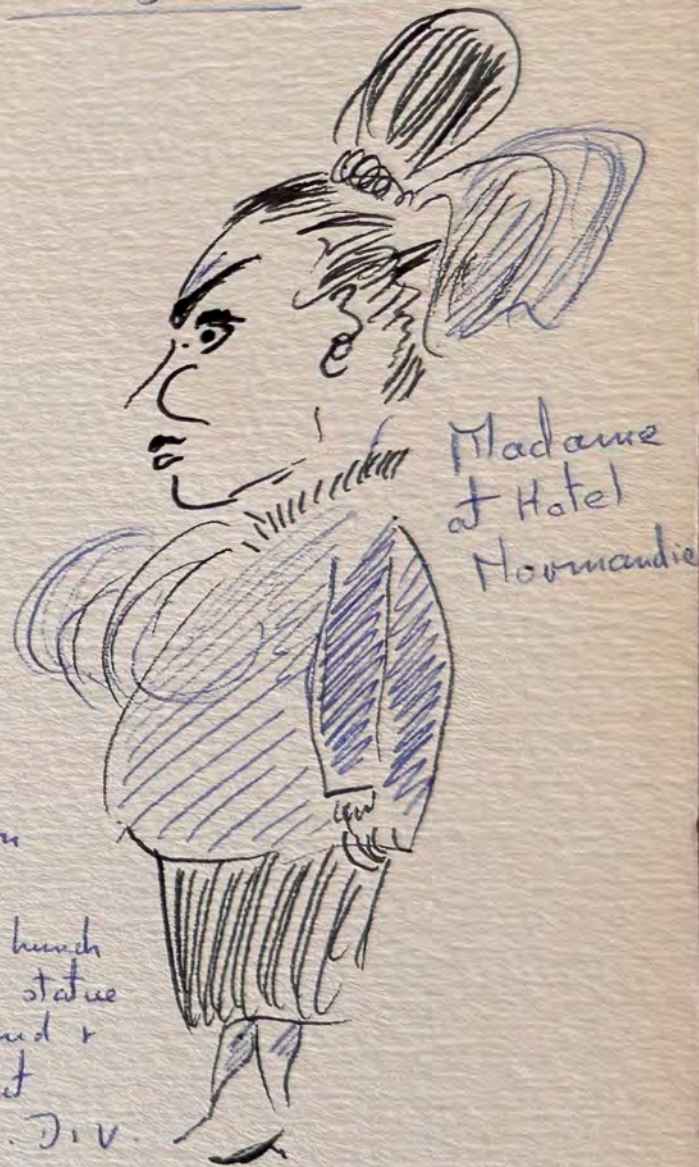 Madame
at Hotel
Normandie
hunch
statue
DIV.